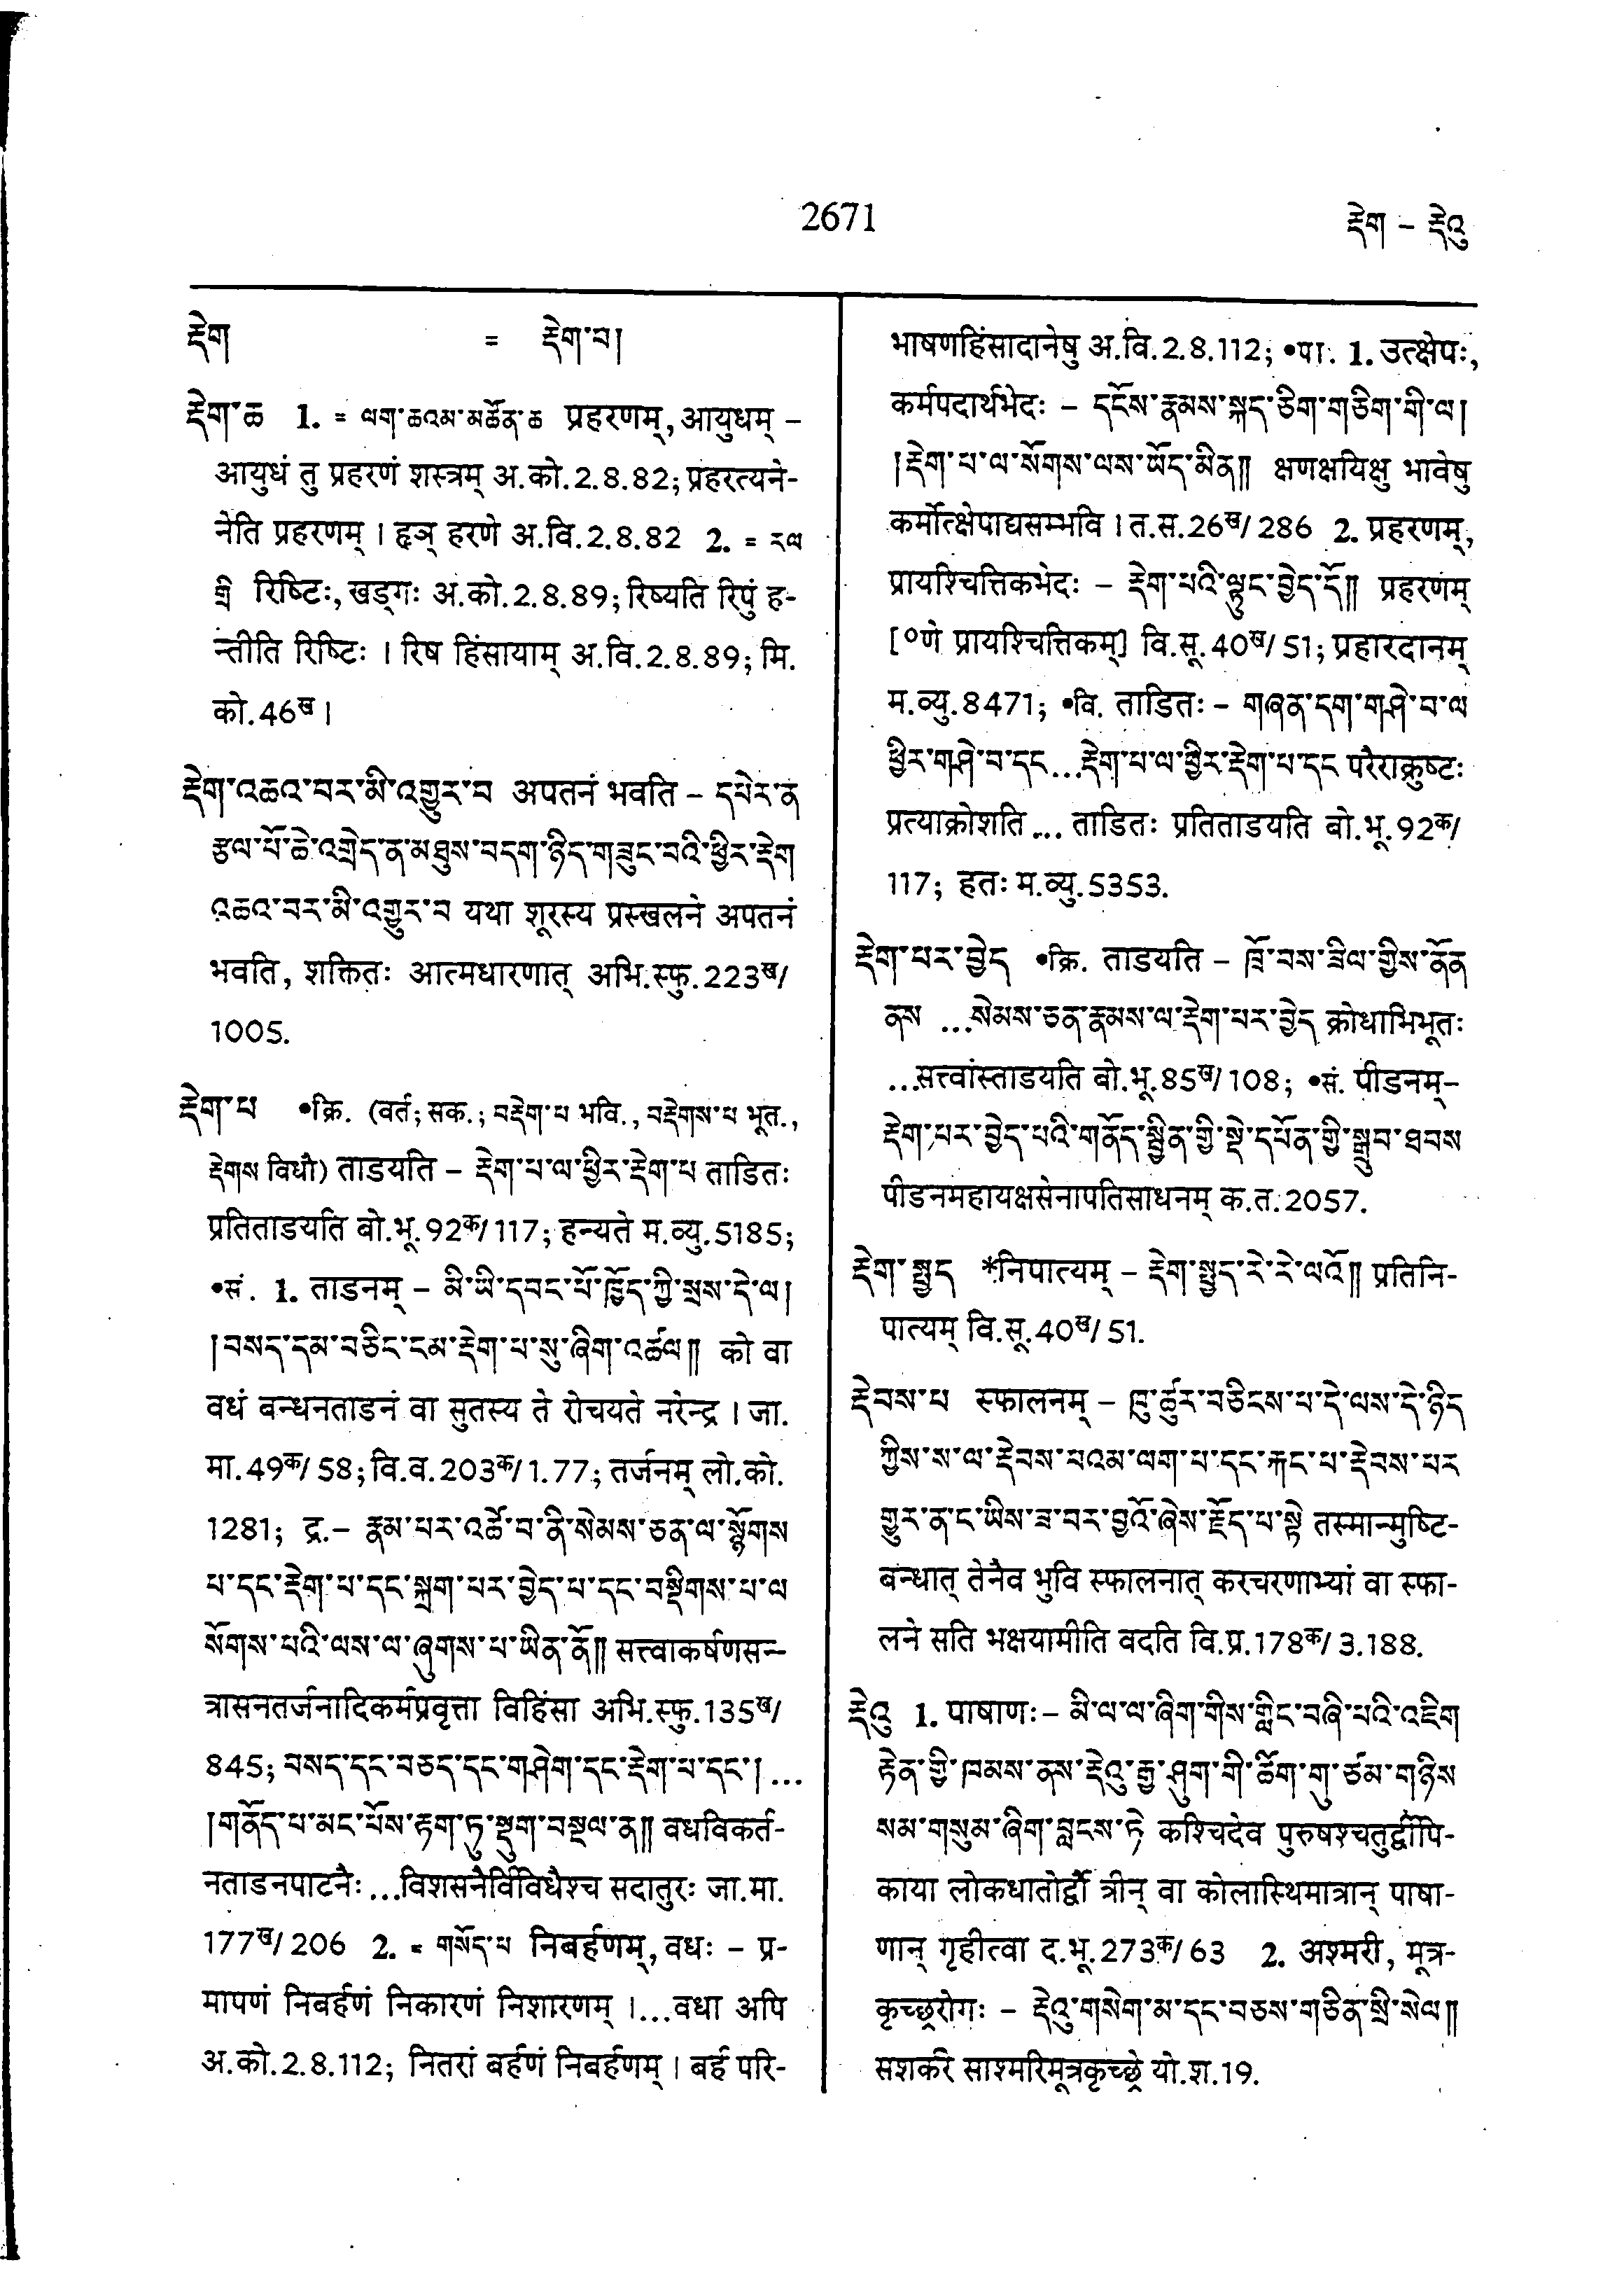 2671
རྡེག – རྡེའུ
རྡེག = རྡེག་པ།
རྡེག་ཆ 1. = ལག་ཆའམ་མཚོན་ཆ प्रहरणम्, आयुधम् –
आयुधं तु प्रहरणं शस्त्रम् अ.को.2.8.82; प्रहरत्यने-
नेति प्रहरणम् । हृञ् हरणे अ.वि.2.8.82 2. = རལ
གྲི रिष्टिः, खड्गः अ.को.2.8.89; रिष्यति रिपुं ह-
न्तीति रिष्टिः । रिष हिंसायाम् अ.वि.2.8.89; मि.
को.46ख ।
རྡེག་འཆའ་བར་མི་འགྱུར་བ अपतनं भवति – དཔེར་ན
རྩལ་པོ་ཆེ་འགྲེད་ན་མཐུས་བདག་ཉིད་གཟུང་བའི་ཕྱིར་རྡེག
འཆའ་བར་མི་འགྱུར་བ यथा शूरस्य प्रस्खलने अपतनं
भवति, शक्तितः आत्मधारणात् अभि.स्फु.223ख/
1005.
རྡེག་པ •क्रि. (वर्त; सक.; བརྡེག་པ भवि., བརྡེགས་པ भूत.,
རྡེགས विधौ) ताडयति – རྡེག་པ་ལ་ཕྱིར་རྡེག་པ ताडितः
प्रतिताडयति बो.भू.92क/117; हन्यते म.व्यु.5185;
•सं. 1. ताडनम् – མི་ཡི་དབང་པོ་ཁྱོད་ཀྱི་སྲས་དེ་ལ།
།བསད་དམ་བཅིང་ངམ་རྡེག་པ་སུ་ཞིག་འཚལ།། को वा
वधं बन्धनताडनं वा सुतस्य ते रोचयते नरेन्द्र । जा.
मा.49क/58; वि.व.203क/1.77; तर्जनम् लो.को.
1281; द्र.– རྣམ་པར་འཚེ་བ་ནི་སེམས་ཅན་ལ་སྙོགས
པ་དང་རྡེག་པ་དང་སྐྲག་པར་བྱེད་པ་དང་བསྡིགས་པ་ལ
སོགས་པའི་ལས་ལ་ཞུགས་པ་ཡིན་ནོ།། सत्त्वाकर्षणसन्-
त्रासनतर्जनादिकर्मप्रवृत्ता विहिंसा अभि.स्फु.135ख/
845; བསད་དང་བཅད་དང་གཤེག་དང་རྡེག་པ་དང་། ...
།གནོད་པ་མང་པོས་རྟག་ཏུ་སྡུག་བསྔལ་ན།། वधविकर्त-
नताडनपाटनैः ...विशसनैर्विविधैश्च सदातुरः जा.मा.
177ख/206 2. = གསོད་པ निबर्हणम्, वधः – प्र-
मापणं निबर्हणं निकारणं निशारणम् ।...वधा अपि
अ.को.2.8.112; नितरां बर्हणं निबर्हणम् । बर्ह परि-
भाषणहिंसादानेषु अ.वि.2.8.112; •पा. 1. उत्क्षेपः,
कर्मपदार्थभेदः – དངོས་རྣམས་སྐད་ཅིག་གཅིག་གི་ལ།
།རྡེག་པ་ལ་སོགས་ལས་ཡོད་མིན།། क्षणक्षयिक्षु भावेषु
कर्मोत्क्षेपाद्यसम्भवि । त.स.26ख/286 2. प्रहरणम्,
प्रायश्चित्तिकभेदः – རྡེག་པའི་ལྟུང་བྱེད་དོ།། प्रहरणम्
[०णे प्रायश्चित्तिकम्] वि.सू.40ख/51; प्रहारदानम्
म.व्यु.8471; •वि. ताडितः – གཞན་དག་གཤེ་བ་ལ
ཕྱིར་གཤེ་བ་དང...རྡེག་པ་ལ་ཕྱིར་རྡེག་པ་དང परैराक्रुष्टः
प्रत्याक्रोशति ... ताडितः प्रतिताडयति बो.भू.92क/
117; हतः म.व्यु.5353.
རྡེག་པར་བྱེད •क्रि. ताडयति – ཁྲོ་བས་ཟིལ་གྱིས་ནོན
ནས ...སེམས་ཅན་རྣམས་ལ་རྡེག་པར་བྱེད क्रोधाभिभूतः
...सत्त्वांस्ताडयति बो.भू.85ख/108; •सं. पीडनम्–
རྡེག་པར་བྱེད་པའི་གནོད་སྦྱིན་གྱི་སྡེ་དཔོན་གྱི་སྒྲུབ་ཐབས
पीडनमहायक्षसेनापतिसाधनम् क.त.2057.
རྡེག་སྤྱད *निपात्यम् – རྡེག་སྤྱད་རེ་རེ་ལའོ།། प्रतिनि-
पात्यम् वि.सू.40ख/51.
རྡེབས་པ स्फालनम् – ཁུ་ཚུར་བཅིངས་པ་དེ་ལས་དེ་ཉིད
ཀྱིས་ས་ལ་རྡེབས་པའམ་ལག་པ་དང་རྐང་པ་རྡེབས་པར
གྱུར་ན་ང་ཡིས་ཟ་བར་བྱའོ་ཞེས་རྗོད་པ་སྟེ तस्मान्मुष्टि-
बन्धात् तेनैव भुवि स्फालनात् करचरणाभ्यां वा स्फा-
लने सति भक्षयामीति वदति वि.प्र.178क/3.188.
རྡེའུ 1. पाषाणः– མི་ལ་ལ་ཞིག་གིས་གླིང་བཞི་པའི་འཇིག
རྟེན་གྱི་ཁམས་ནས་རྡེའུ་རྒྱ་ཤུག་གི་ཚིག་གུ་ཙམ་གཉིས
སམ་གསུམ་ཞིག་བླངས་ཏེ कश्चिदेव पुरुषश्चतुर्द्वीपि-
काया लोकधातोर्द्वौ त्रीन् वा कोलास्थिमात्रान् पाषा-
णान् गृहीत्वा द.भू.273क/63 2. अश्मरी, मूत्र-
कृच्छ्ररोगः – རྡེའུ་གསེག་མ་དང་བཅས་གཅིན་སྲི་སེལ།།
सशर्करे साश्मरिमूत्रकृच्छ्रे यो.श.19.